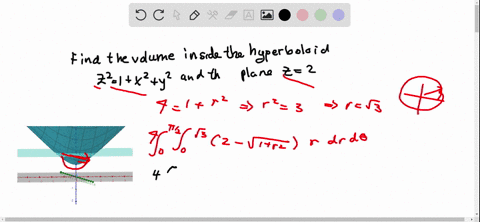 Find the volume inside the hyperboloid
z²=1+x²+y² and th plane z=2
4=1+r² ⇒ r²=3 ⇒ r=√3
4∫₀^{π/2} ∫₀^{√3} (2-√(1+r²)) r dr dθ
4 ∫